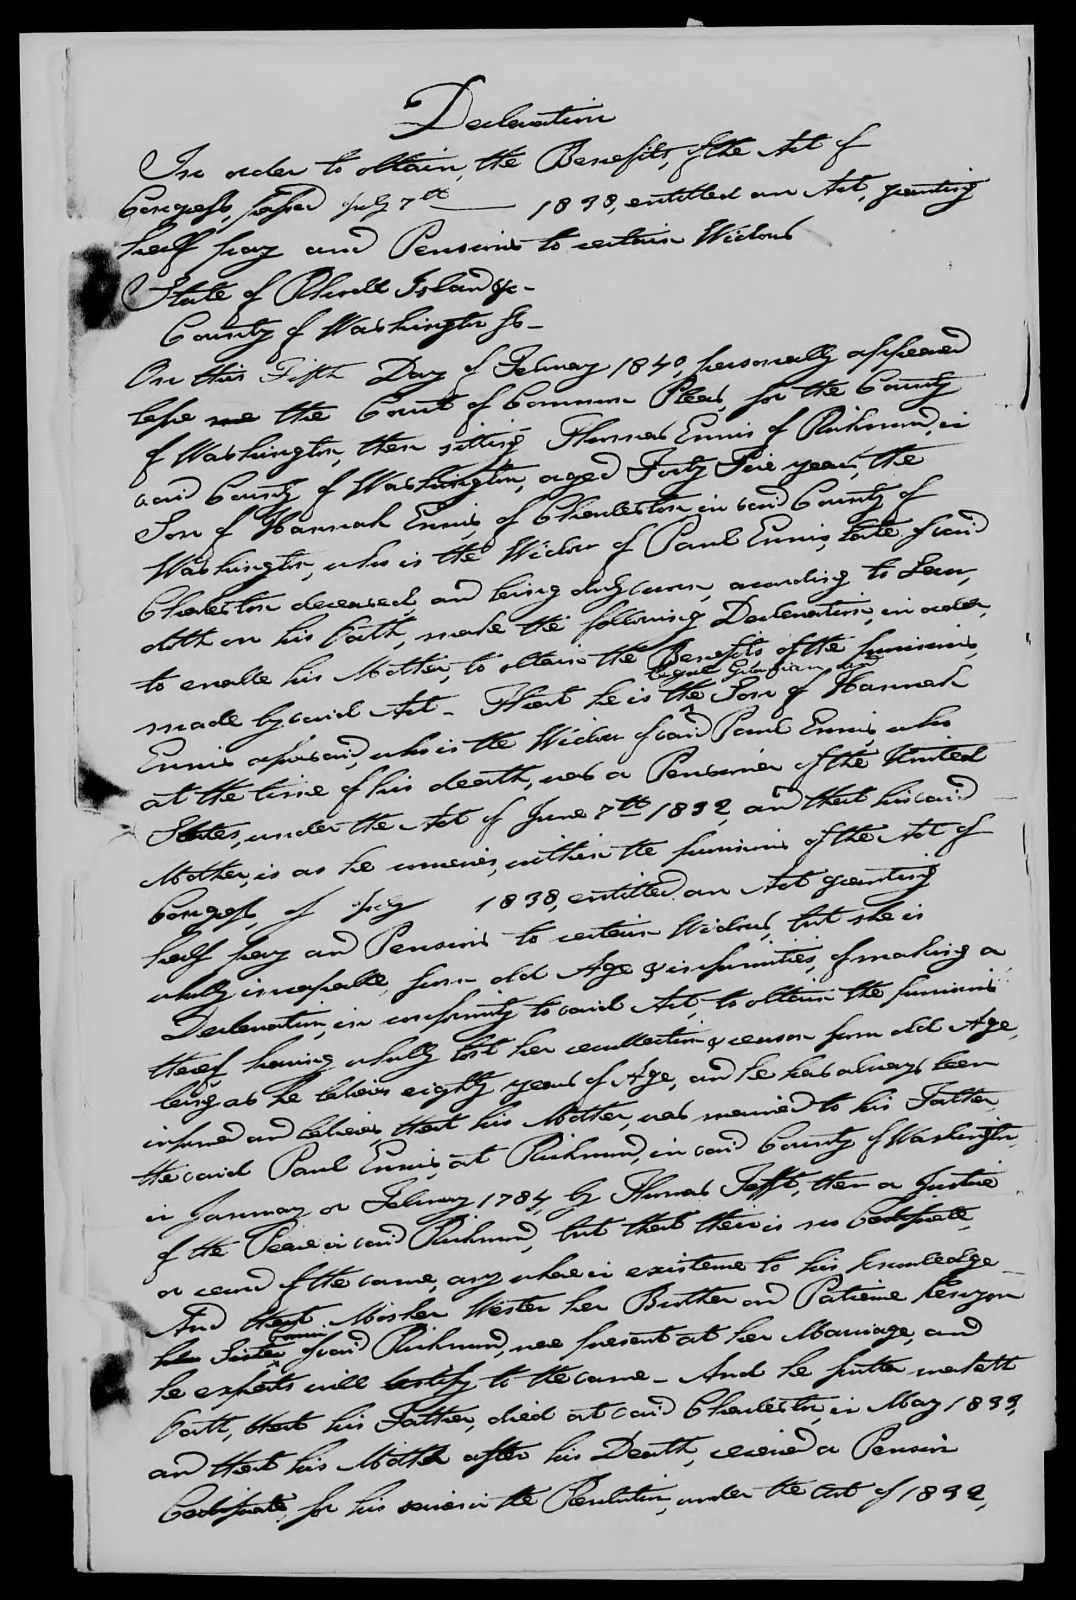 Declaration
In order to obtain, the Benefits, of the Act of
Congress, passed July 7th 1838, entitled an Act, granting
half pay and Pensions to certain Widows
State of Rhode Island &c-
County of Washington Ss-
On this Fifth Day of Febuary 1840, personally appeared
before me the Court of Common Pleas, for the County
of Washington, then sitting Thomas Ennis of Richmond, in
said County of Washington, aged Forty Five years, the
Son of Hannah Ennis, of Charleston in said County of
Washington, who is the Widow of Paul Ennis, late of said
Charleston deceased, and being duly sworn, according to Law,
doth on his Oath, make the following Declaration, in order,
to enable his Mother, to obtain the Benefits of the provisions
legal Guardian and
made by said Act - That he is the Son of Hannah
Ennis aforesaid, who is the Widow of said Paul Ennis, who
at the time of his death, was a Pensioner of the United
States, under the Act of June 7th 1832, and that his said
Mother, is as he conceives, within the provisions of the Act of
Congress, of July 1838, entitled an Act granting
half pay and Pensions to certain Widows, but she is
wholly incapable, from old Age & infirmities, of making a
Declaration, in conformity to said Act, to obtain the provisions
thereof having wholly lost her recollection & reason from old Age,
being as he believes eighty years of Age, and he has always been
informed and believes, that his Mother, was married to his Father,
the said Paul Ennis, at Richmond, in said County of Washington,
in January or Febuary 1784, by Thomas Tefft, then a Justice
of the Peace in said Richmond, but that their is no Certificate,
or record of the same, any where in existence to his knowledge -
And that Mosher Wester her Brother and Patience
her Sister Cousin of said Richmond, were present at her Marriage, and
he expects will testify to the same - And he further maketh
Oath, that his Father, died at said Charleston, in May 1833,
and that his Mother after his Death, received a Pension
Certificate, for his services in the Revolution, under the act of 1832,